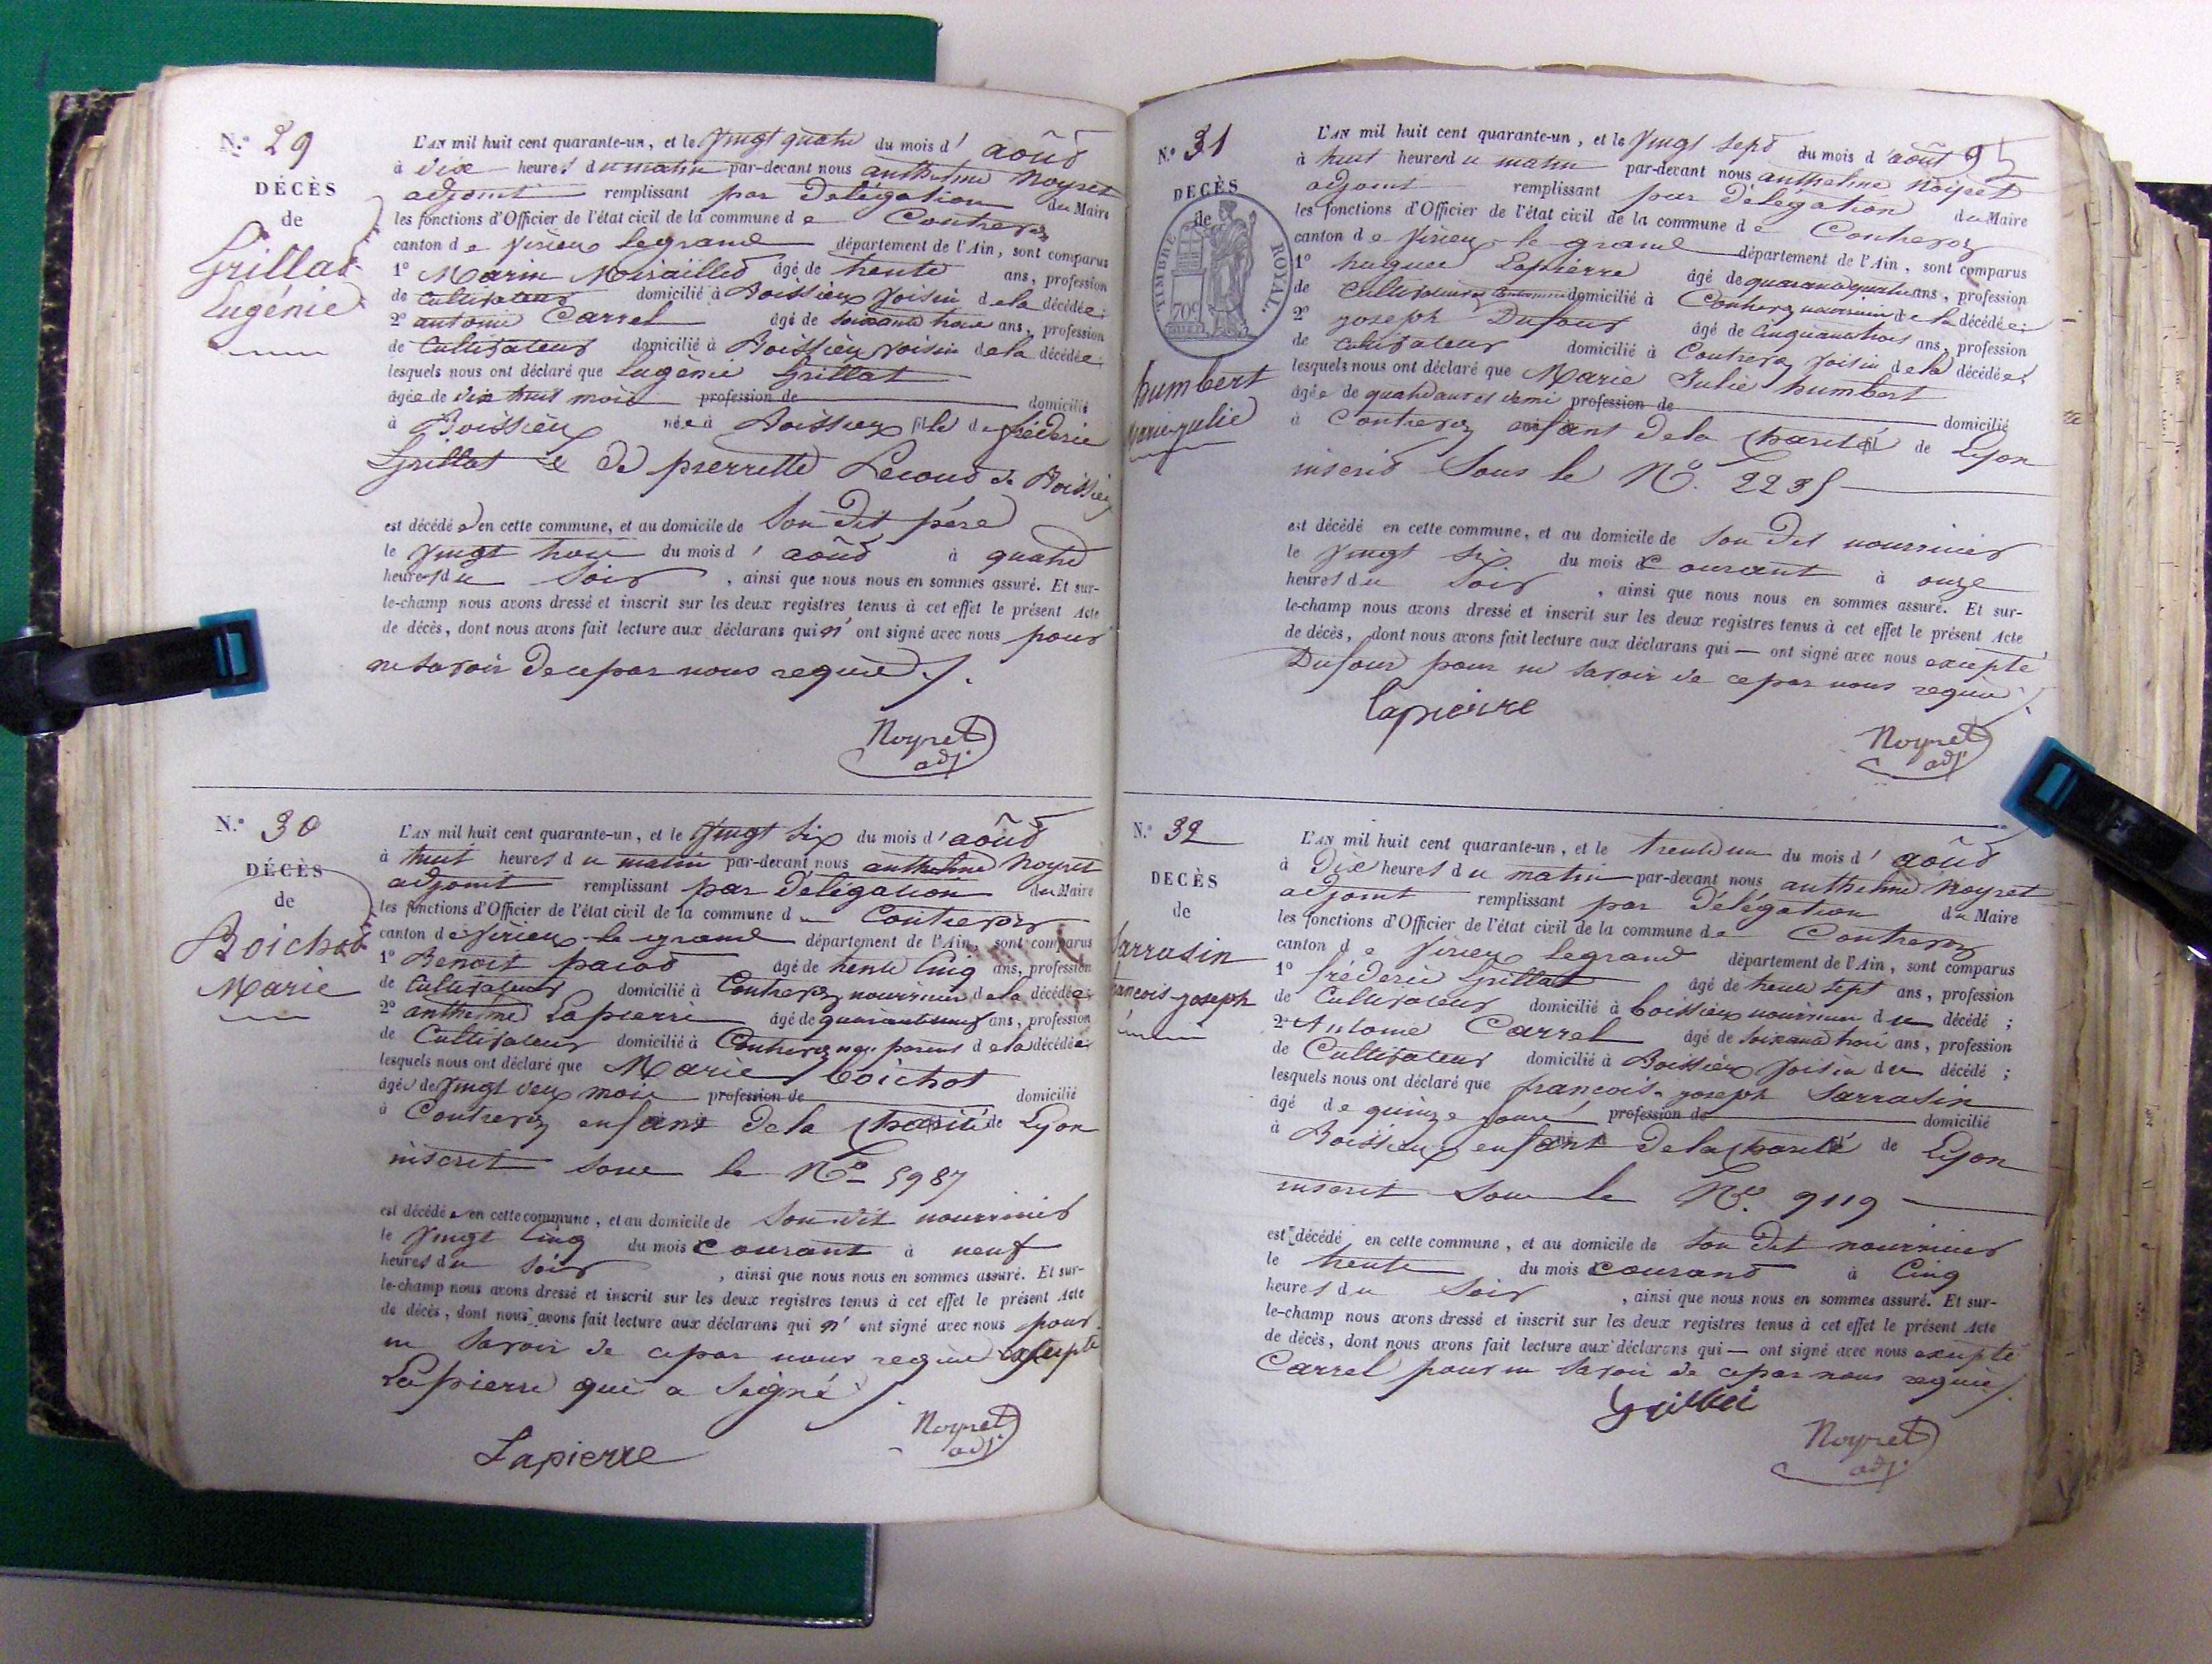 N.° 29
DÉCÈS
de
Grillat
Eugénie
L'AN mil huit cent quarante-un, et le vingt quatre du mois d' août
à dix heures du matin par-devant nous anthelme Noyret
adjoint remplissant par Délégation du Maire
les fonctions d'Officier de l'état civil de la commune de Contrevoz
canton de Virieu legrand département de l'Ain, sont comparus
1° Marin âgé de trente ans, profession
de cultivateur domicilié à Boissieu voisin de la décédée;
2° antoine Carrel âgé de soixante trois ans, profession
de cultivateur domicilié à Boissieu voisin de la décédée;
lesquels nous ont déclaré que Eugénie Grillat
âgée de dix huit mois profession de domicilié
à Boissieu née à Boissieu fille de fréderic
Grillat & de pierrette de Boissieu
est décédée en cette commune, et au domicile de son dit père
le vingt trois du mois d' août à quatre
heures du soir, ainsi que nous nous en sommes assuré. Et sur-
le-champ nous avons dressé et inscrit sur les deux registres tenus à cet effet le présent Acte
de décès, dont nous avons fait lecture aux déclarans qui n' ont signé avec nous pour
ne savoir de ce par nous requis.
Noyret
adj.
N.° 30
DÉCÈS
de
Boichot
Marie
L'AN mil huit cent quarante-un, et le vingt six du mois d' août
à huit heures du matin par-devant nous anthelme Noyret
adjoint remplissant par Délégation du Maire
les fonctions d'Officier de l'état civil de la commune de Contrevoz
canton de Virieu-le-grand département de l'Ain, sont comparus
1° Benoit pacod âgé de trente cinq ans, profession
de Cultivateur domicilié à Contrevoz nourricier de la décédée;
2° anthelme Lapierre âgé de quarante neuf ans, profession
de Cultivateur domicilié à Contrevoz parent de la décédée
lesquels nous ont déclaré que Marie boichot
âgée de vingt deux mois profession de domicilié
à Contrevoz enfant de la charité de Lyon
inscrit sous le N° 5987
est décédée en cette commune, et au domicile de son dit nourricier
le vingt cinq du mois courant à neuf
heures du soir, ainsi que nous nous en sommes assuré. Et sur-
le-champ nous avons dressé et inscrit sur les deux registres tenus à cet effet le présent Acte
de décès, dont nous avons fait lecture aux déclarans qui n' ont signé avec nous pour
ne savoir de ce par nous requis excepte
Lapierre qui a signé
Lapierre
Noyret
adj.
95
N.° 31
DECÈS
de
TIMBRE ROYAL.
70c
humbert
marie-julie
L'AN mil huit cent quarante-un, et le vingt sept du mois d'août
à huit heures du matin par-devant nous anthelme Noyret
adjoint remplissant par Délégation du Maire
les fonctions d'Officier de l'état civil de la commune de Contrevoz
canton de Virieu-le-grand département de l'Ain, sont comparus
1° hugues Lapierre âgé de quarante quatre ans, profession
de cultivateur domicilié à Contrevoz nourricier de la décédée;
2° joseph Dufour âgé de cinquante trois ans, profession
de cultivateur domicilié à Contrevoz voisin de la décédée;
lesquels nous ont déclaré que Marie Julie humbert
âgée de quatre ans et demi profession de domicilié
à Contrevoz enfant de la charité de Lyon
inscrit sous le N°. 2235
est décédé en cette commune, et au domicile de son dit nourricier
le vingt six du mois courant à onze
heures du soir, ainsi que nous nous en sommes assuré. Et sur-
le-champ nous avons dressé et inscrit sur les deux registres tenus à cet effet le présent Acte
de décès, dont nous avons fait lecture aux déclarans qui — ont signé avec nous excepte
Dufour pour ne savoir de ce par nous requis
lapierre
Noyret
adj.
N.° 32
DECÈS
de
Sarrasin
francois-joseph
L'AN mil huit cent quarante-un, et le trente un du mois d' août
à Dix heures du matin par-devant nous anthelme Noyret
adjoint remplissant par Délégation du Maire
les fonctions d'Officier de l'état civil de la commune de Contrevoz
canton de Virieu legrand département de l'Ain, sont comparus
1° fréderic Grillat âgé de trente sept ans, profession
de Cultivateur domicilié à boissieu nourricier du décédé;
2° Antoine Carrel âgé de soixante trois ans, profession
de Cultivateur domicilié à Boissieu voisin du décédé;
lesquels nous ont déclaré que francois-joseph Sarrasin
âgé de quinze jours profession de domicilié
à Boissieu enfant de la charité de Lyon
inscrit sous le N°. 9119
est décédé en cette commune, et au domicile de son dit nourricier
le trente du mois courant à cinq
heures du soir, ainsi que nous nous en sommes assuré. Et sur-
le-champ nous avons dressé et inscrit sur les deux registres tenus à cet effet le présent Acte
de décès, dont nous avons fait lecture aux déclarans qui — ont signé avec nous excepté
Carrel pour ne savoir de ce par nous requis.
Grillat
Noyret
adj.